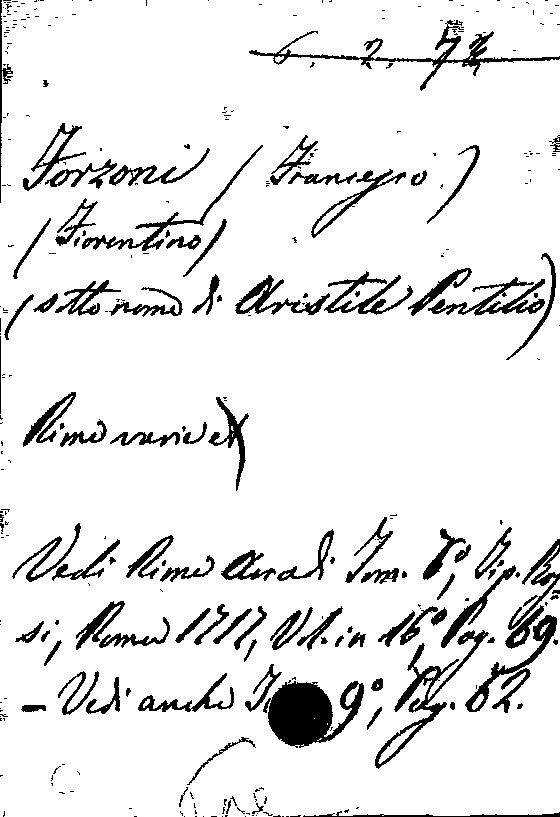 6. 2. 7
Forzoni (Francesco)
(Fiorentino)
(sotto nome di Aristile Pentilio)
Rime varie
Vedi Rime Arcadi Tom. 6º, Tip. Ros
si, Roma 1717, Vol. in 16º, Pag. 69.
– Vedi anche 9º, Pag. 62.